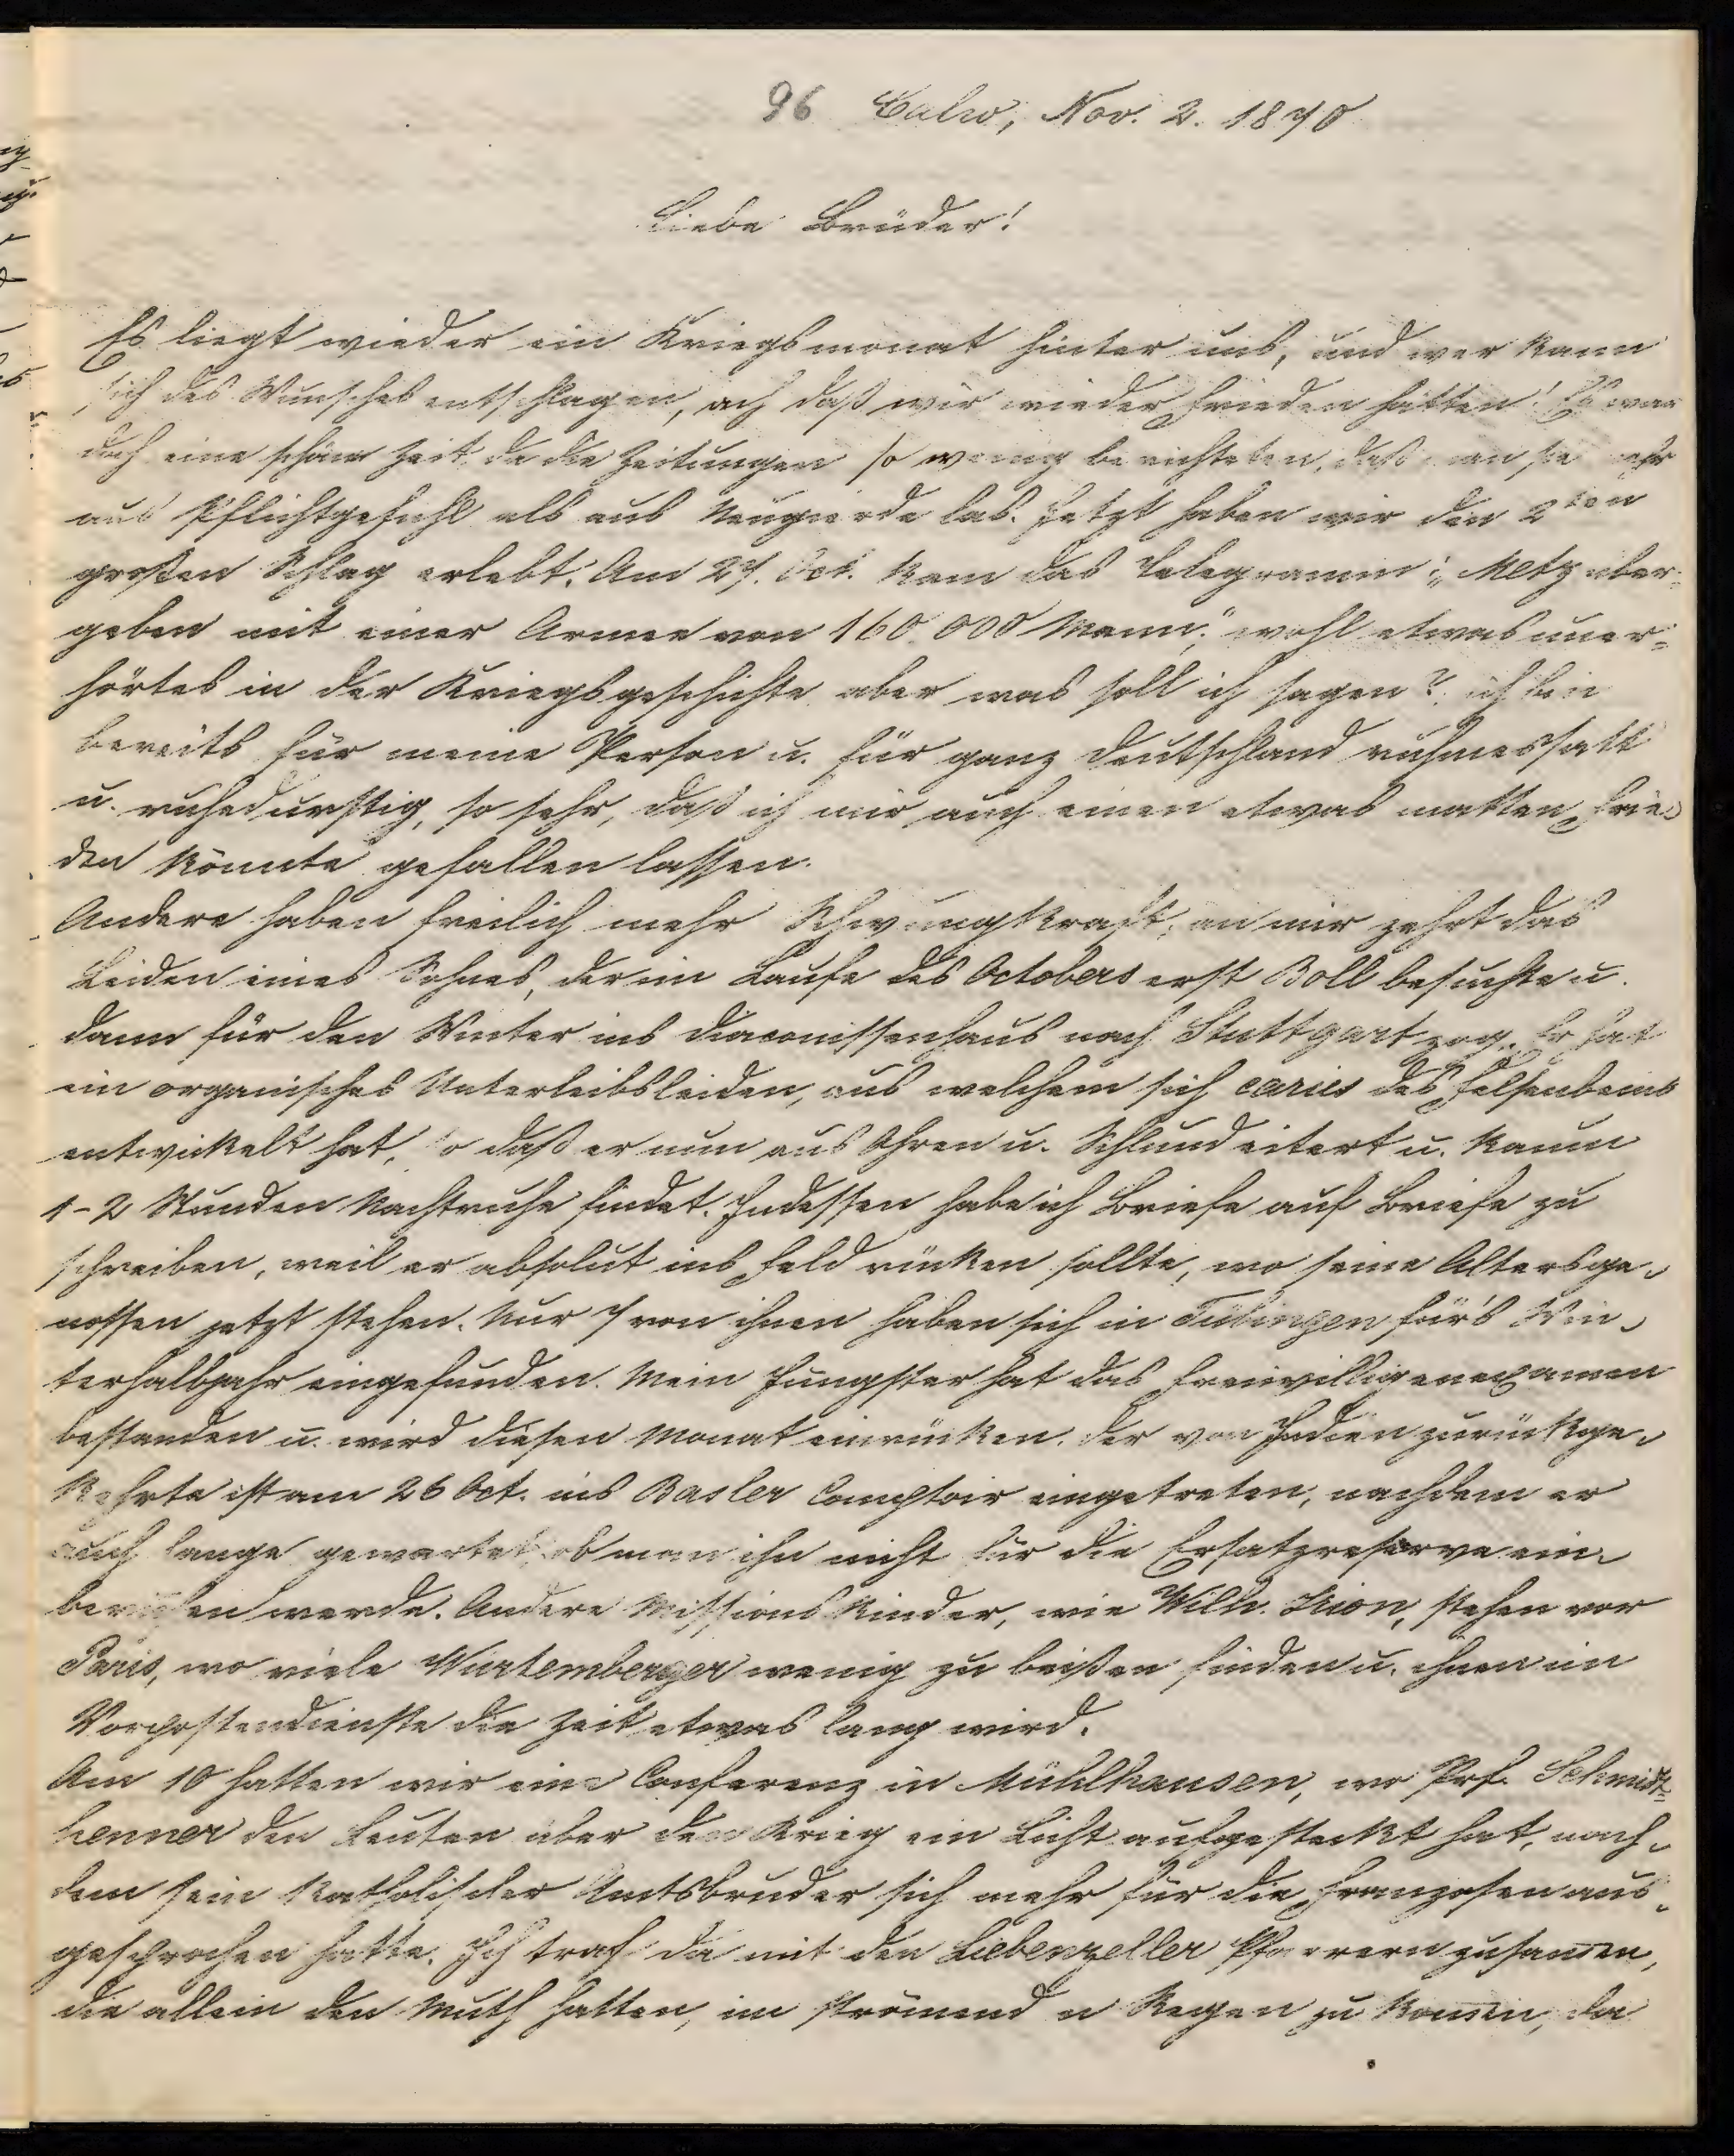 96 Calw, Nov. 2. 1870
Liebe Brüder!
Es liegt wieder ein Kriegsmonat hinter uns, und wer kann
sich des Wunsches entschlagen, ach daß wir wieder Frieden hätten! Es war
doch eine schöne Zeit, da die Zeitungen so wenig berichteten, daß man sie mehr
aus Pflichtgefühl als aus Neugierde las. Jetzt haben wir den 2ten
großen Schlag erlebt. Am 27. Oct. kam das Telegramm: „Metz über-
geben mit einer Armee von 160,000 Mann", wohl etwas uner-
hörtes in der Kriegsgeschichte aber was soll ich sagen? ich bin
bereits für meine Person u. für ganz Deutschland ruhmessatt
u. ruhedurstig, so sehr, daß ich mir auch einen etwas matten Frie-
den könnte gefallen lassen.
Andere haben freilich mehr Schwungkraft; an mir zehrt das
Leiden eines Sohnes, der im Laufe des Octobers erst Boll besuchte u.
dann für den Winter ins Diaconissenhaus nach Stuttgart zog. Er hat
ein organisches Unterleibsleiden, aus welchem sich caries des Felsenbeins
entwickelt hat, so daß er nun aus Ohren u. Schlund eitert u. kaum
1-2 Stunden Nachtruhe findet. Indessen habe ich Briefe auf Briefe zu
schreiben, weil er absolut ins Feld rücken sollte, wo seine Altersge-
nossen jetzt stehen. Nur 7 von ihnen haben sich in Tübingen für's Win-
terhalbjahr eingefunden. Mein Jüngster hat das Freiwilligenexamen
bestanden u. wird diesen Monat einrücken. Der von Indien zurückge-
kehrte ist am 26 Oct. ins Basler Comptoir eingetreten, nachdem er
auch lange gewartet, ob man ihn nicht für die Ersatzreserve ein-
berufen werde. Andere Missionskinder, wie Wilh. Irion, stehen vor
Paris, wo viele Würtemberger wenig zu beißen finden u. ihnen im
Vorpostendienste die Zeit etwas lang wird.
Am 10 hatten wir eine Conferenz in Mühlhausen, wo Prf. Schmidt-
henner den Leuten über den Krieg ein Licht aufgesteckt hat, nach-
dem sein katholischer Amtsbruder sich mehr für die Franzosen aus-
gesprochen hatte. Ich traf da mit den Liebenzeller Pfarrern zusamen,
die allein den Muth hatten, im strömenden Regen zu komen, da